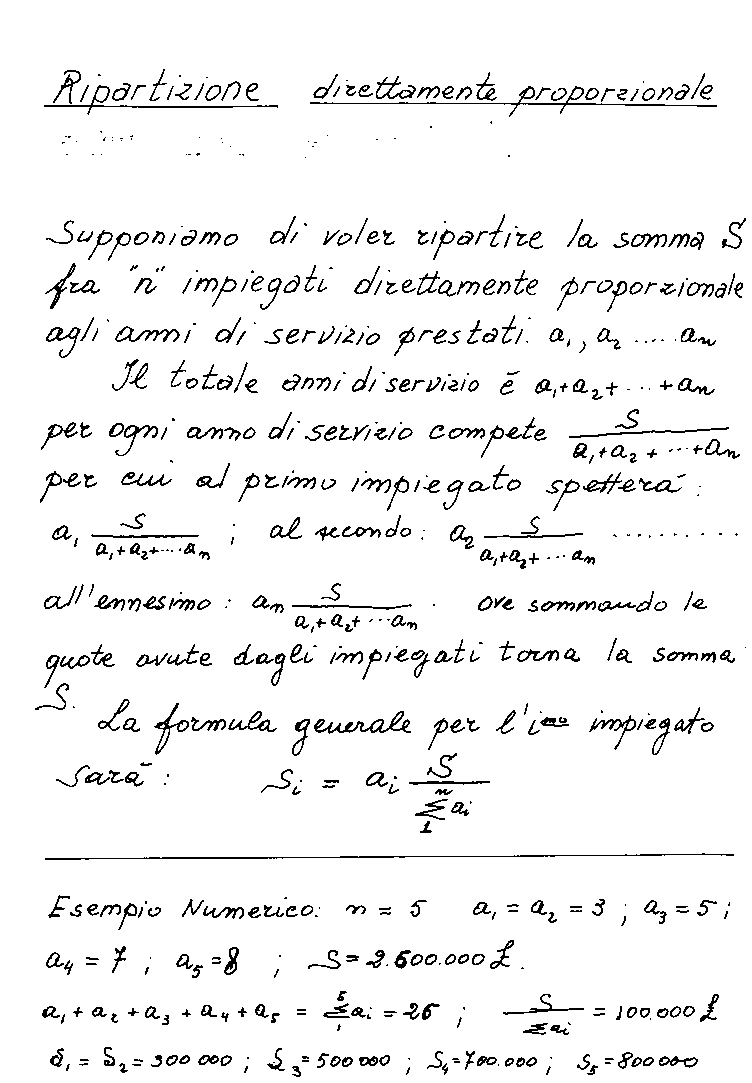 Ripartizione direttamente proporzionale
Supponiamo di voler ripartire la somma S
fra "n" impiegati direttamente proporzionale
agli anni di servizio prestati. a₁, a₂ ..... aₙ
Il totale anni di servizio è a₁+a₂+ ... +aₙ
per ogni anno di servizio compete S/(a₁+a₂+ ... +aₙ)
per cui al primo impiegato spetterà :
a₁ S/(a₁+a₂+...aₙ) ; al secondo : a₂ S/(a₁+a₂+...aₙ) ..........
all'ennesimo : aₙ S/(a₁+a₂+...aₙ) . ove sommando le
quote avute dagli impiegati torna la somma
S.
La formula generale per l'iᵐᵒ impiegato
sarà : Sᵢ = aᵢ S/(Σ₁ⁿ aᵢ)
Esempio Numerico: n = 5 a₁ = a₂ = 3 ; a₃ = 5 ;
a₄ = 7 ; a₅ = 8 ; S = 2.600.000 £.
a₁ + a₂ + a₃ + a₄ + a₅ = Σ₁⁵ aᵢ = 26 ; S/(Σ aᵢ) = 100.000 £
S₁ = S₂ = 300 000 ; S₃ = 500 000 ; S₄ = 700.000 ; S₅ = 800000